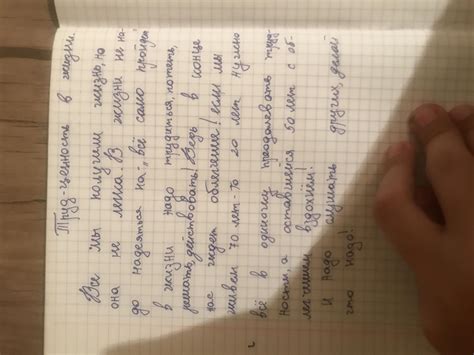 Труд-ценность в жизни.
Все мы получили жизнь, но
она не легка. В жизни не на-
до надеяться на „всё само пройдёт"
в жизни надо трудиться, потеть,
решать, действовать! Ведь в конце
нас ждет облегчение! если мы
живем 70 лет-то 20 лет нужно
всё в одиночку преодолевать труд-
ности, а оставшиеся 50 лет с об-
легчением вздохнём!
И надо слушать других, делай
что надо!
2